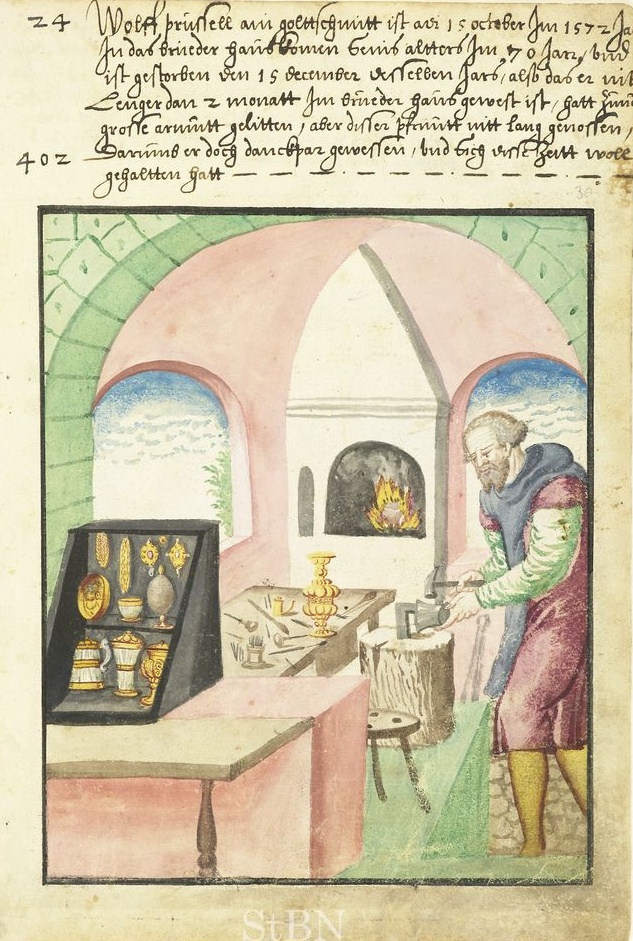 24 Wolff prüssell ain golttschmitt ist adi 15 october Im 1572 Ja
In das brüeder hauß komen seins altters Im 70 Jarr, vnd
ist gestorben den 15 december desselben Jars, also das er nit
Lenger dan 2 monatt Im brüeder hauß gewest ist, hatt
grosse armütt gelitten, aber disser pfrüntt nitt lang genossen,
402 Darumb er doch danckpar gewessen, vnd sich disse Zeitt woll
gehaltten hatt
StBN